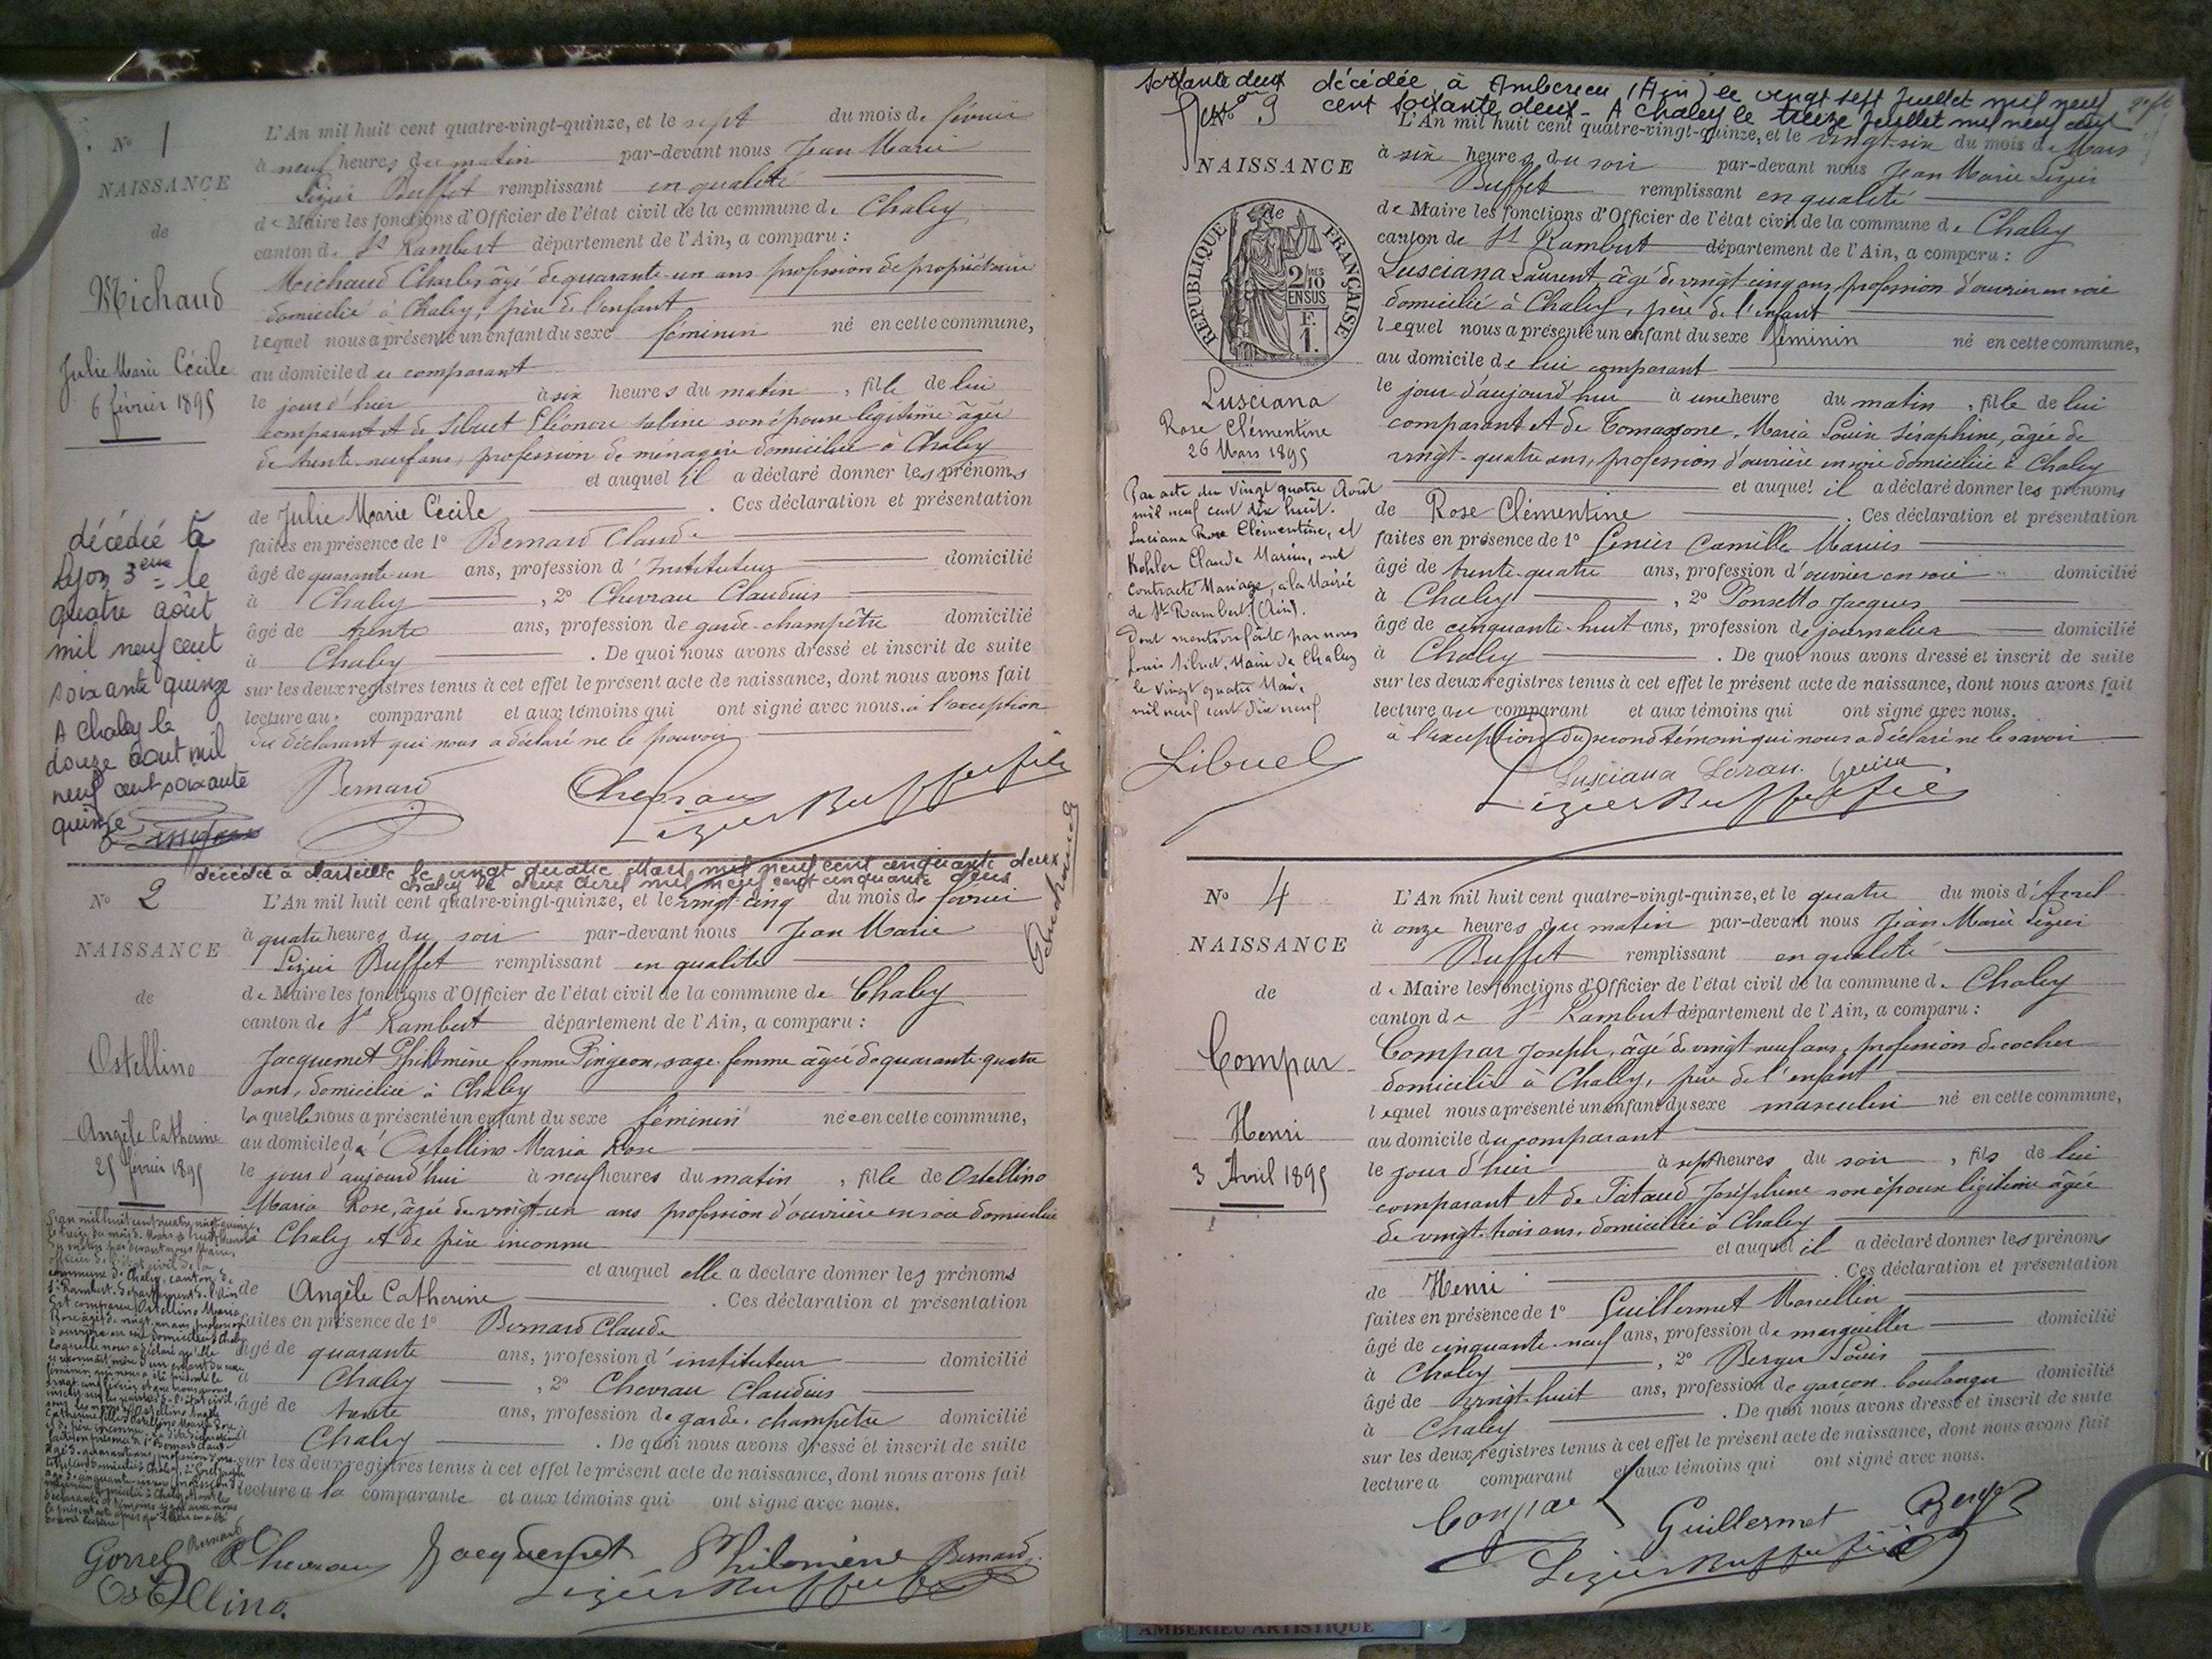 N° 1
NAISSANCE
de
Michaud
Julie Marie Cécile
6 février 1895
décédée à
Lyon 3eme le
quatre août
mil neuf cent
soixante quinze
A Chaley le
douze août mil
neuf cent soixante
quinze
L'An mil huit cent quatre-vingt-quinze, et le sept du mois de février
à neuf heures du matin par-devant nous Jean Marie
Lizier Buffet remplissant en qualité
de Maire les fonctions d'Officier de l'état civil de la commune de Chaley
canton de St Rambert département de l'Ain, a comparu :
Michaud Charles âgé de quarante-un ans profession de propriétaire
domicilié à Chaley, père de l'enfant
lequel nous a présenté un enfant du sexe féminin né en cette commune,
au domicile du comparant
le jour d'hier à six heures du matin, fille de lui
comparant et de Sibuet Eléonore Sabine son épouse légitime âgée
de trente-neuf ans, profession de ménagère domiciliée à Chaley
et auquel il a déclaré donner les prénoms
de Julie Marie Cécile. Ces déclaration et présentation
faites en présence de 1° Bernard Claude
âgé de quarante-un ans, profession d'Instituteur domicilié
à Chaley, 2° Chevrau Claudius
âgé de trente ans, profession de garde-champêtre domicilié
à Chaley. De quoi nous avons dressé et inscrit de suite
sur les deux registres tenus à cet effet le présent acte de naissance, dont nous avons fait
lecture au comparant et aux témoins qui ont signé avec nous. à l'exception
du déclarant qui nous a déclaré ne le pouvoir
Bernard Chevrau
Lizier Buffet fils
décédée à Marseille le vingt quatre Mars mil neuf cent cinquante deux
Chaley le deux Avril mil neuf cent cinquante deux
N° 2
NAISSANCE
de
Ostellino
Angèle Catherine
25 février 1895
L'An mil huit cent quatre-vingt-quinze, et le vingt-cinq du mois de février
à quatre heures du soir par-devant nous Jean Marie
Lizier Buffet remplissant en qualité
de Maire les fonctions d'Officier de l'état civil de la commune de Chaley
canton de St Rambert département de l'Ain, a comparu :
Jacquemet Philomène femme Pingeon, sage-femme âgée de quarante-quatre
ans, domiciliée à Chaley
laquelle nous a présenté un enfant du sexe féminin née en cette commune,
au domicile de Ostellino Maria Rose
le jour d'aujourd'hui à neuf heures du matin, fille de Ostellino
Maria Rose, âgée de vingt-un ans profession d'ouvrière en soie domiciliée
à Chaley et de père inconnu
et auquel elle a déclaré donner les prénoms
de Angèle Catherine. Ces déclaration et présentation
faites en présence de 1° Bernard Claude
âgé de quarante ans, profession d'instituteur domicilié
à Chaley, 2° Chevrau Claudius
âgé de trente ans, profession de garde-champêtre domicilié
à Chaley. De quoi nous avons dressé et inscrit de suite
sur les deux registres tenus à cet effet le présent acte de naissance, dont nous avons fait
lecture a la comparante et aux témoins qui ont signé avec nous.
L'an mil huit cent quatre vingt quinze
commune de Chaley, canton de
St Rambert département de l'Ain
est comparue Ostellino Maria
Bernard
Chevrau Jacquemet Philomène Bernard
Ostellino
Lizier Buffet fils
soixante deux décédée à Ambérieu (Ain) le vingt sept Juillet mil neuf
cent soixante deux - A Chaley le treize Juillet mil neuf cent
NAISSANCE
de
RÉPUBLIQUE FRANÇAISE
2/10
EN SUS
F.
1.
Lusciana
Rose Clémentine
26 Mars 1895
Par acte du vingt quatre Août
mil neuf cent dix huit.
Lusciana Rose Clémentine, et
Kohler Claude Marius, ont
contracté Mariage, à la Mairie
de St Rambert (Ain).
Dont mention faite par nous
Louis Sibuet, Maire de Chaley
le vingt quatre Mai
mil neuf cent dix neuf
Sibuet
L'An mil huit cent quatre-vingt-quinze, et le vingt-six du mois de Mars
à six heures du soir par-devant nous Jean Marie Lizier
Buffet remplissant en qualité
de Maire les fonctions d'Officier de l'état civil de la commune de Chaley
canton de St Rambert département de l'Ain, a comparu :
Lusciana Laurent, âgé de vingt-cinq ans, profession d'ouvrier en soie
domicilié à Chaley, père de l'enfant
lequel nous a présenté un enfant du sexe féminin né en cette commune,
au domicile de lui comparant
le jour d'aujourd'hui à une heure du matin, fille de lui
comparant et de Tomassone, Maria Louise Séraphine, âgée de
vingt-quatre ans, profession d'ouvrière en soie domiciliée à Chaley
et auquel il a déclaré donner les prénoms
de Rose Clémentine. Ces déclaration et présentation
faites en présence de 1° Genier Camille Marius
âgé de trente-quatre ans, profession d'ouvrier en soie domicilié
à Chaley, 2° Ponsetto Jacques
âgé de cinquante-huit ans, profession de journalier domicilié
à Chaley. De quoi nous avons dressé et inscrit de suite
sur les deux registres tenus à cet effet le présent acte de naissance, dont nous avons fait
lecture au comparant et aux témoins qui ont signé avec nous.
à l'exception du second témoin qui nous a déclaré ne le savoir
Lusciana Loran
Lizier Buffet fils
N° 4
NAISSANCE
de
Compar
Henri
3 Avril 1895
L'An mil huit cent quatre-vingt-quinze, et le quatre du mois d'Avril
à onze heures du matin par-devant nous Jean Marie Lizier
Buffet remplissant en qualité
de Maire les fonctions d'Officier de l'état civil de la commune de Chaley
canton de St Rambert département de l'Ain, a comparu :
Compar Joseph, âgé de vingt-neuf ans, profession de cocher
domicilié à Chaley, père de l'enfant
lequel nous a présenté un enfant du sexe masculin né en cette commune,
au domicile du comparant
le jour d'hier à sept heures du soir, fils de lui
comparant et de Tataud Joséphine son épouse légitime âgée
de vingt-trois ans, domiciliée à Chaley
et auquel il a déclaré donner les prénoms
de Henri. Ces déclaration et présentation
faites en présence de 1° Guillermet Marcellin
âgé de cinquante-neuf ans, profession de marguiller domicilié
à Chaley, 2° Berger Louis
âgé de vingt-huit ans, profession de garçon-boulanger domicilié
à Chaley. De quoi nous avons dressé et inscrit de suite
sur les deux registres tenus à cet effet le présent acte de naissance, dont nous avons fait
lecture a comparant et aux témoins qui ont signé avec nous.
Compar Guillermet Berger
Lizier Buffet fils
AMBÉRIEU ARTISTIQUE